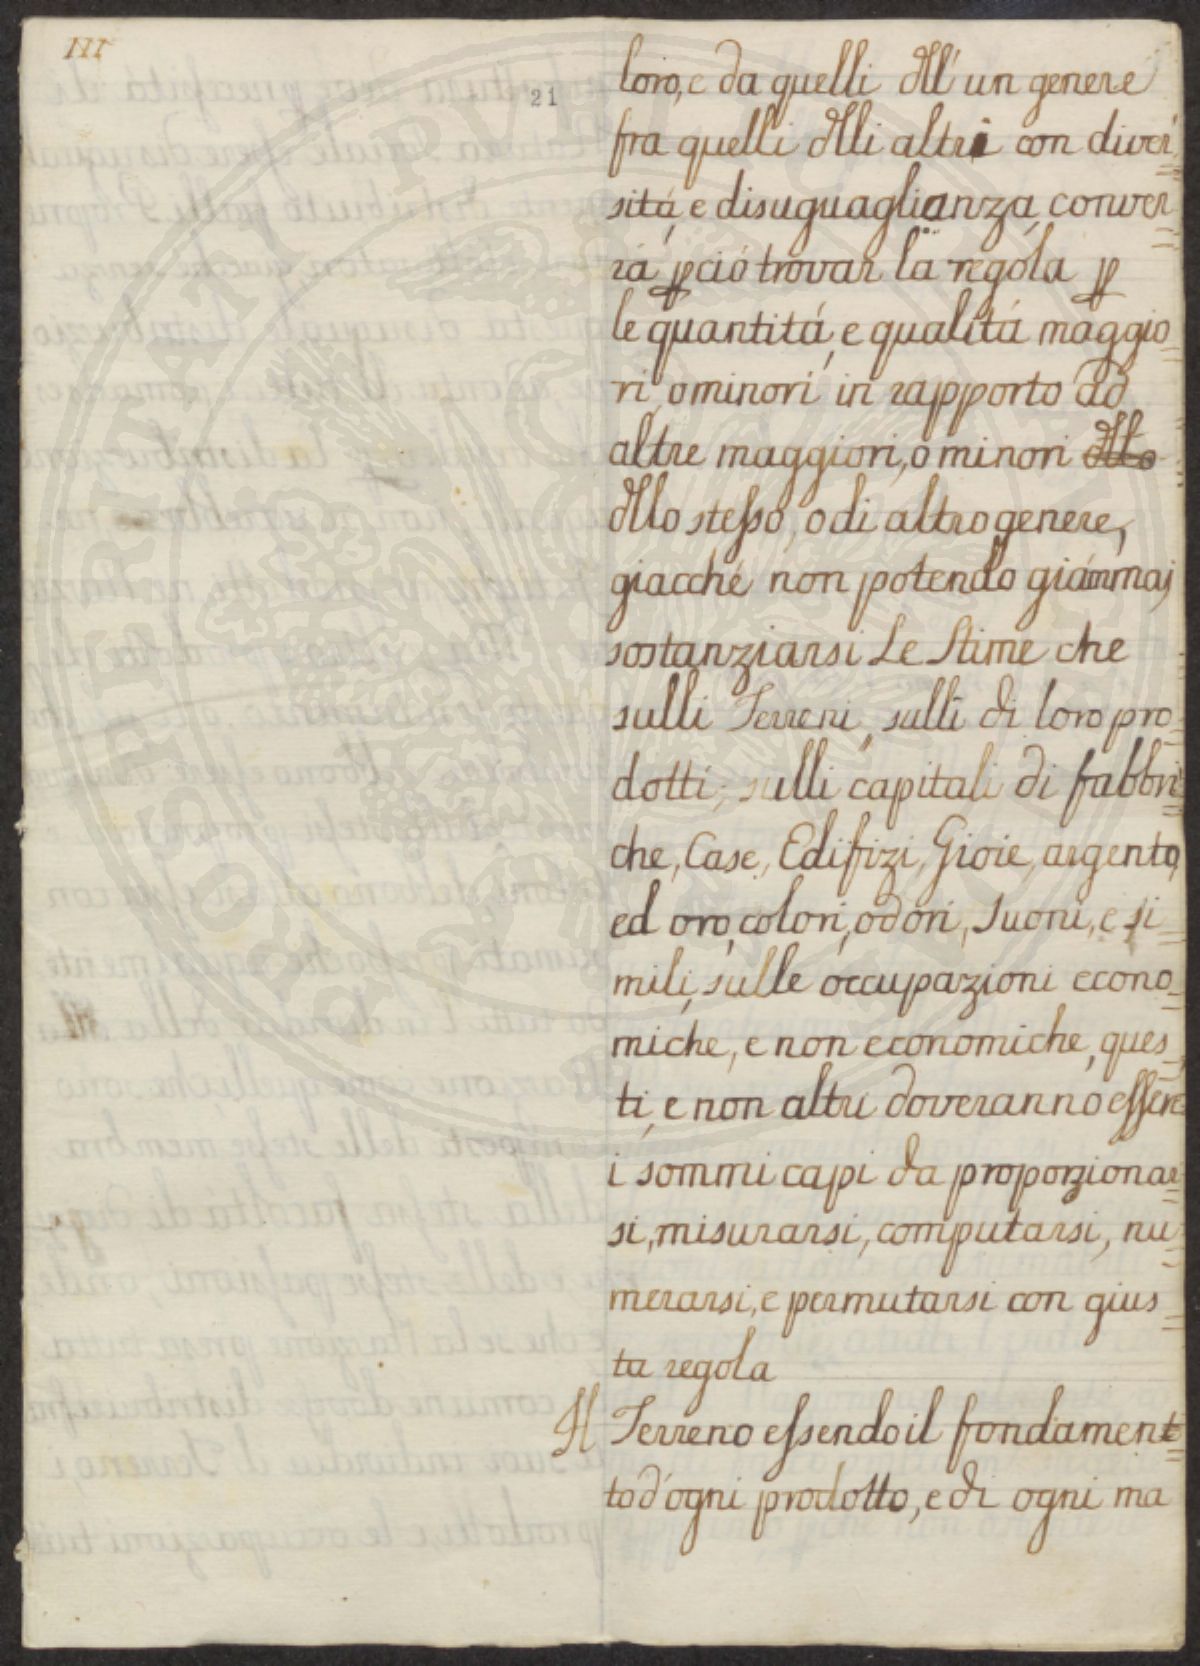 III
21
loro, e da quelli dll' un genere
fra quelli dlli altri con diver=
sitá, e disuguaglianza, conver=
rá pció trovar la regola p
le quantitá, e qualitá maggio=
ri, o minori in rapporto ad
altre maggiori, o minori dllo
dllo stesso, o di altro genere,
giacché non potendo giámmai
sostanziarsi Le Stime che
sulli Terreni, sulli di loro pro=
dotti, sulli capitali di fabbri=
che, Case, Edifizi, Gioie, argento,
ed oro, colori, odori, suoni, e si=
mili, sulle occupazioni econo=
miche, e non economiche, ques=
ti, e non altri doveranno essere
i sommi capi da proporzionar=
si, misurarsi, computarsi, nu=
merarsi, e permutarsi con gius=
ta regola
Il Terreno essendo il fondament=
to d'ogni prodotto, e di ogni ma